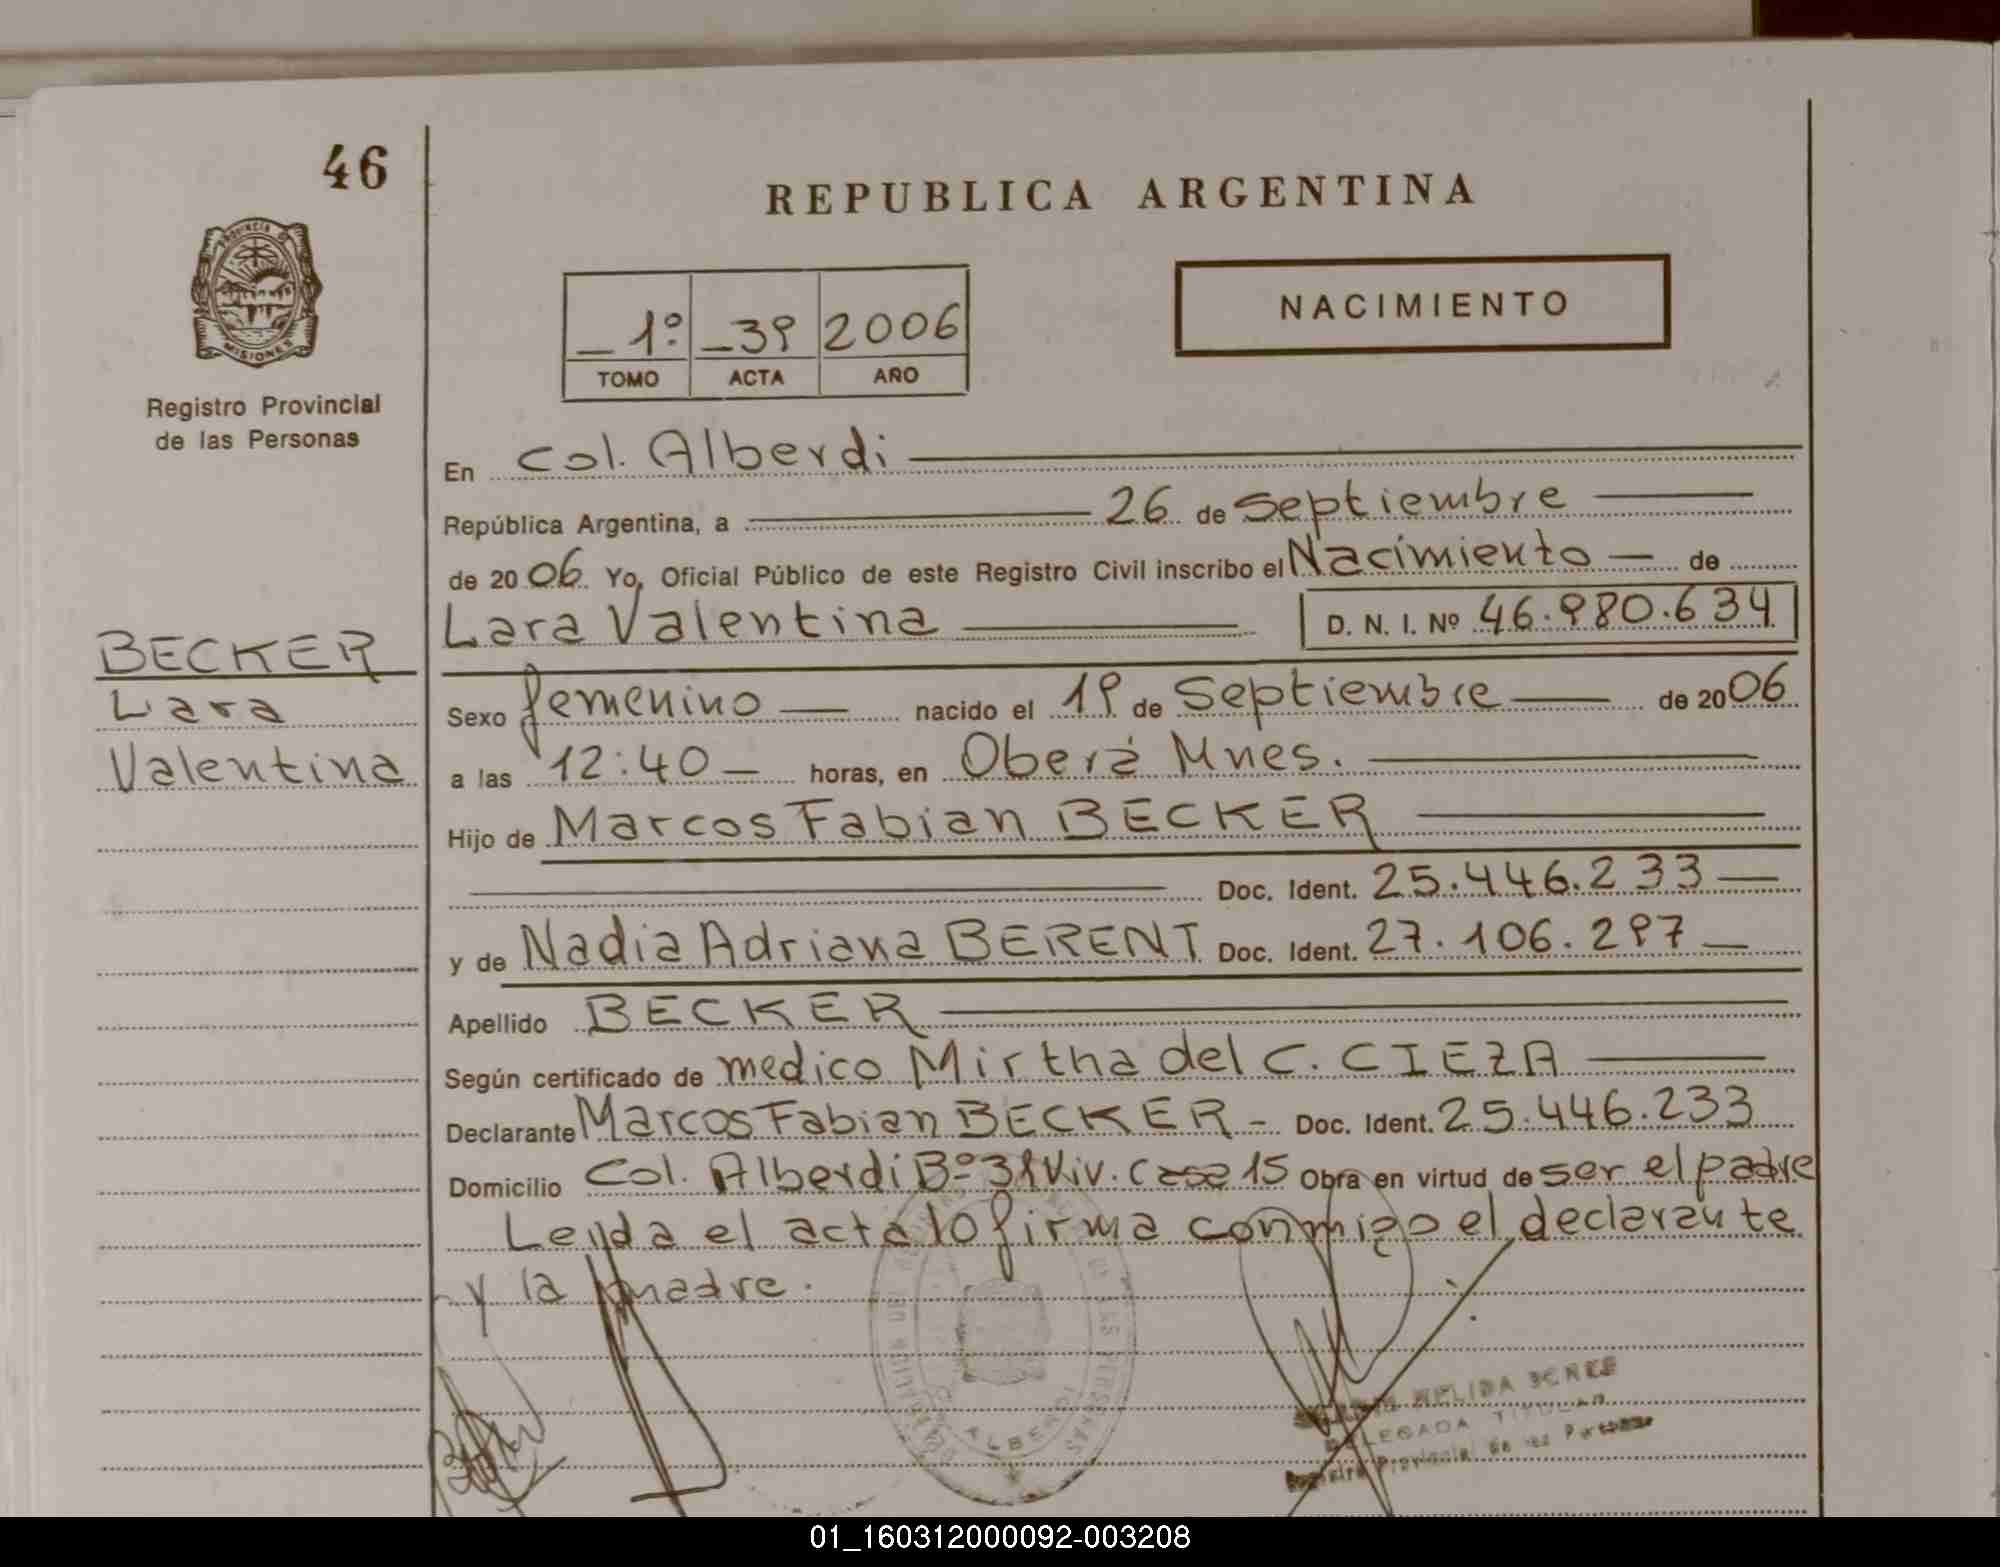 46
REPUBLICA ARGENTINA
PROVINCIA DE
MISIONES
Registro Provincial
de las Personas
1º 39 2006
TOMO ACTA AÑO
NACIMIENTO
En Col. Alberdi
República Argentina, a 26 de Septiembre
de 2006 Yo, Oficial Público de este Registro Civil inscribo el Nacimiento de
Lara Valentina D. N. I. Nº 46.980.634
BECKER
Lara
Valentina
Sexo femenino nacido el 19 de Septiembre de 2006
a las 12:40 horas, en Oberá Mnes.
Hijo de Marcos Fabian BECKER
Doc. Ident. 25.446.233
y de Nadia Adriana BERENT Doc. Ident. 27.106.297
Apellido BECKER
Según certificado de medico Mirtha del C. CIEZA
Declarante Marcos Fabian BECKER - Doc. Ident. 25.446.233
Domicilio Col. Alberdi Bº 31 Viv. Casa 15 Obra en virtud de ser el padre
Leida el acta lo firma conmigo el declarante
y la madre.
DELEGADA TITULAR
Registro Provincial de las Personas
01_160312000092-003208